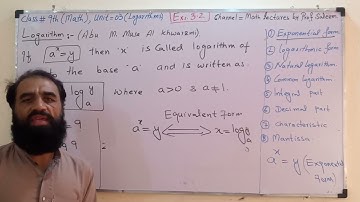 Class # 9th (Math), Unit = 03 (Logarithms) Ex: 3.2 Channel = Math Lectures by Prof Saleem
Logarithm :- (Abu M. Musa Al Khwarizmi)
If a^x = y then 'x' is Called logarithm of
the base 'a' and is written as.
log y a where a>0 & a≠1.
Equivalent Form
a^x = y ⟺ x = log y a
① Exponential form
② logarithmic form
③ Natural logarithm
④ Common logarithm
⑤ Integral part
⑥ Decimal part
⑦ characteristic
⑧ Mantissa
a^x = y (Exponential
form)